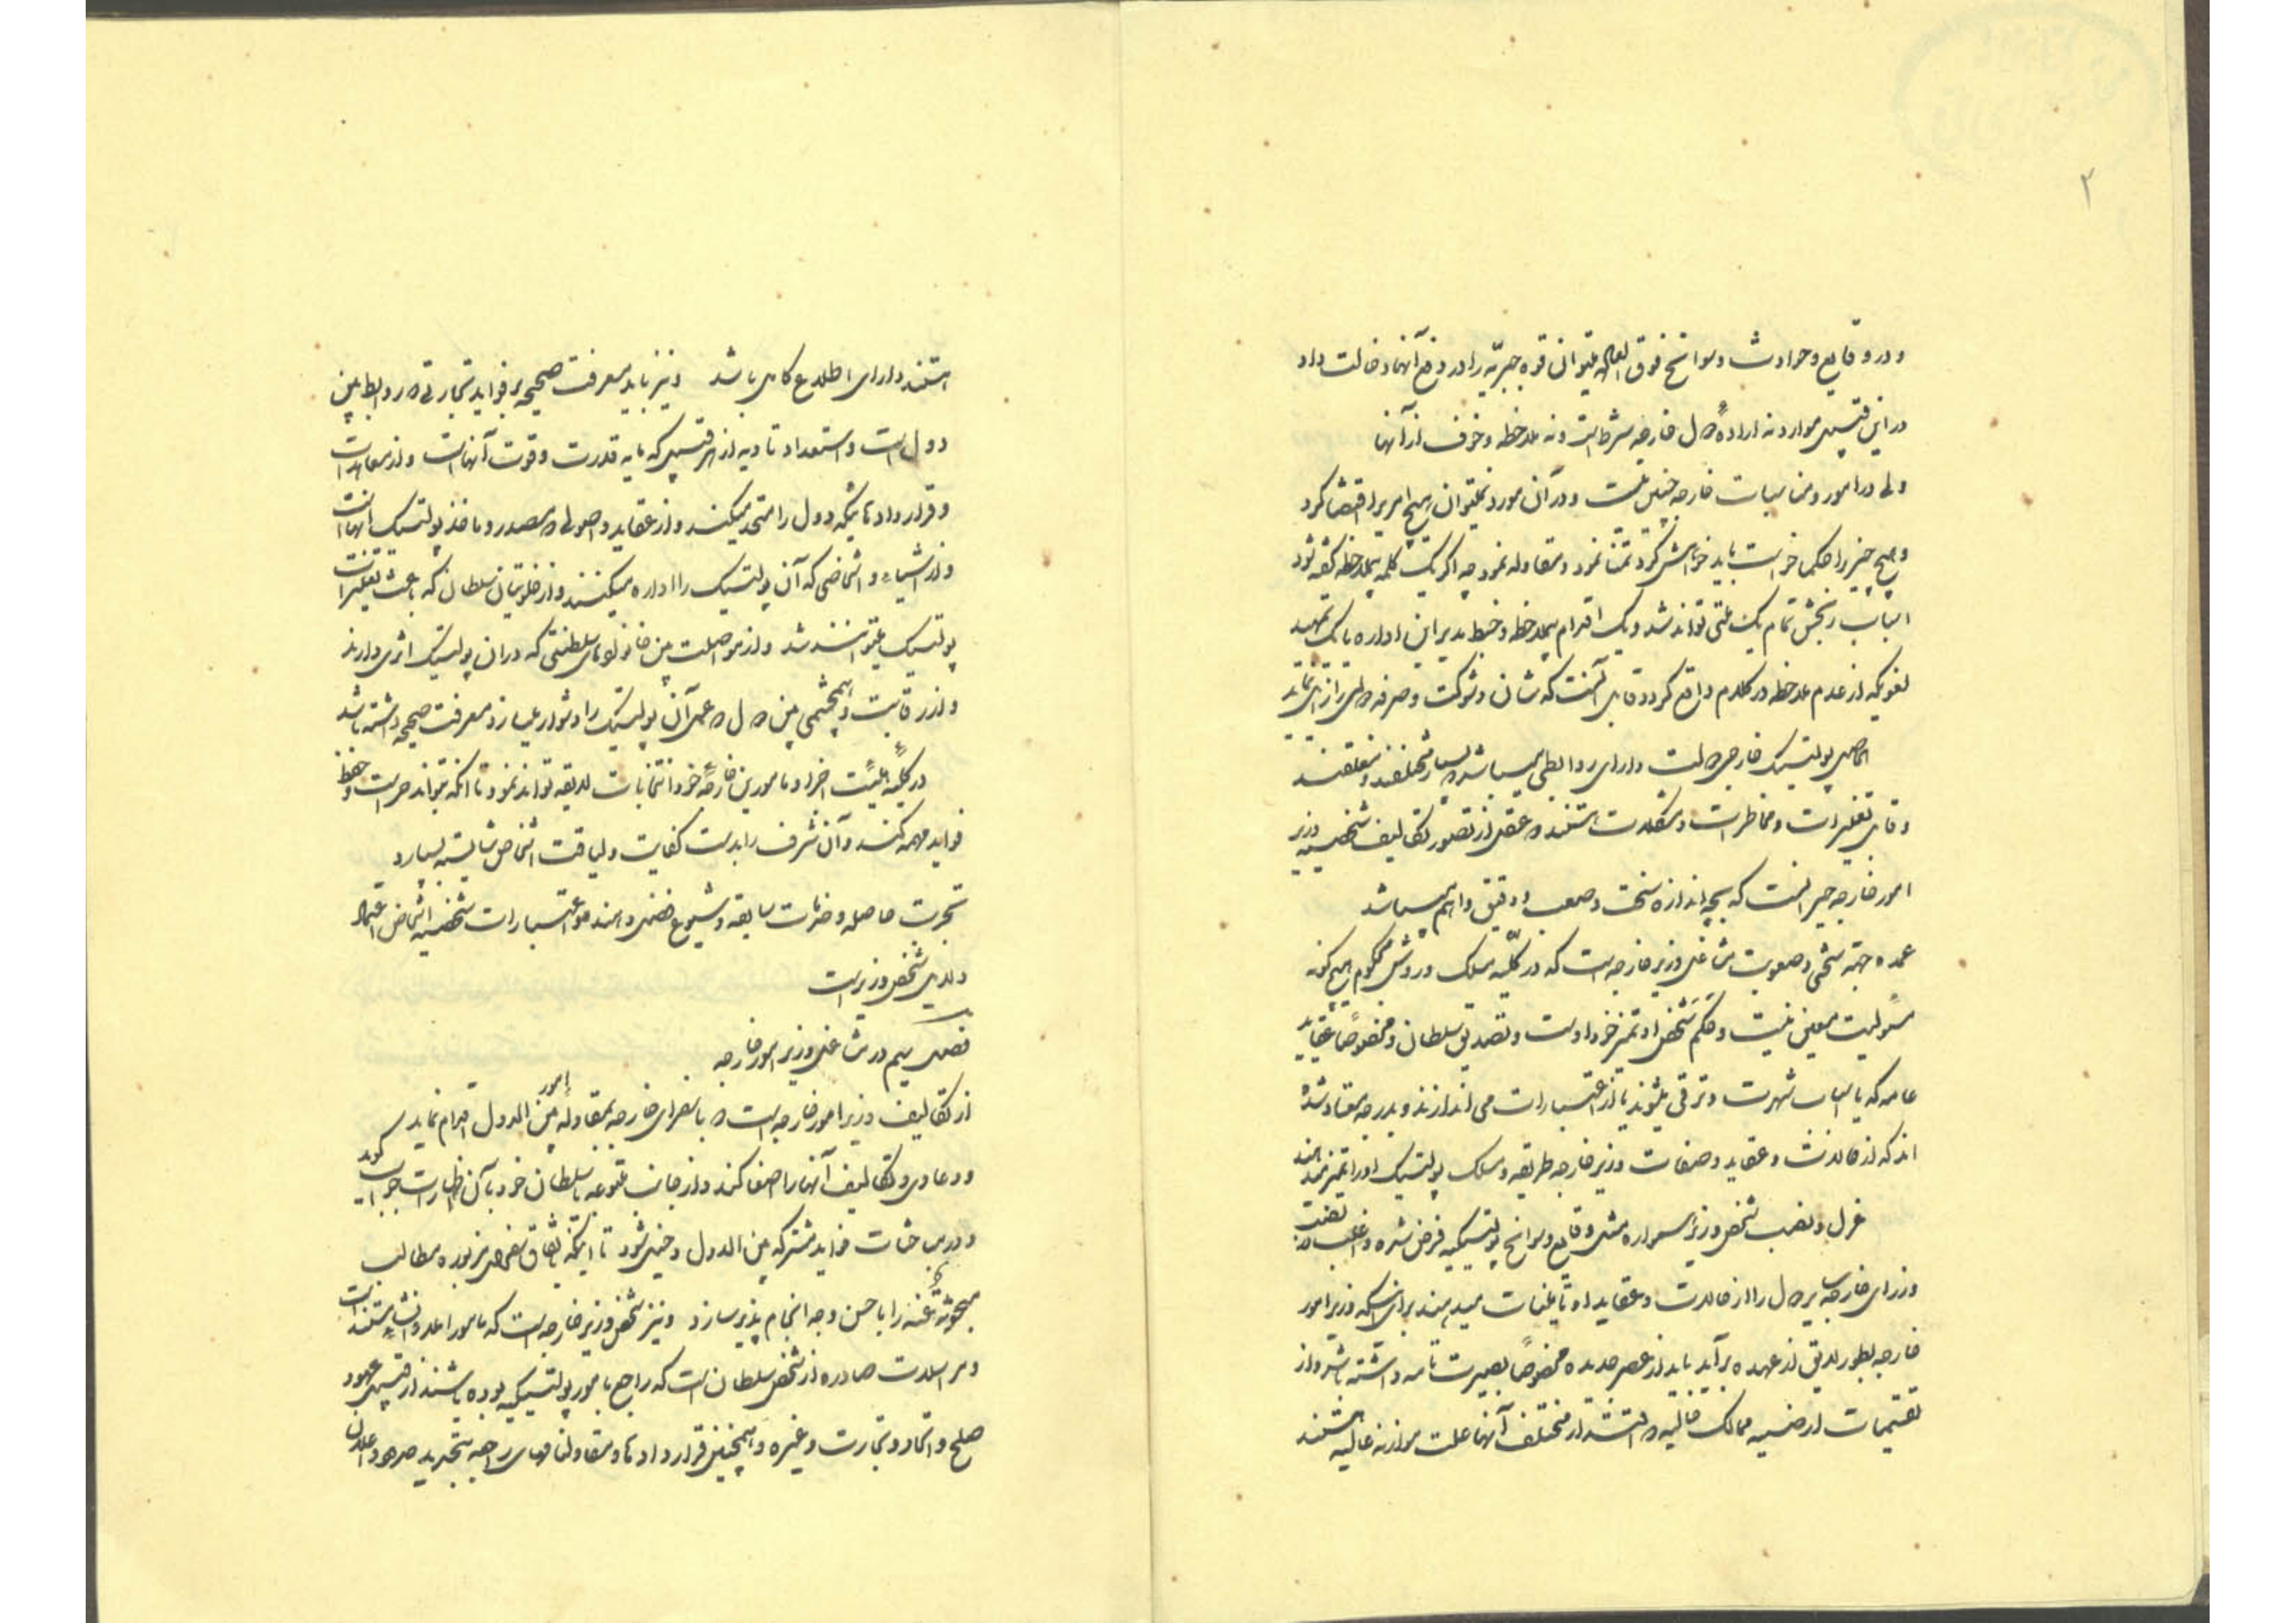 ۲
و در وقایع و حوادث و سوانح فوق العاده میتوان قوه جبریّه را در دفع آنها دخالت داد
در این قسم موارد نه اراده دول خارجه شرط است و نه ملاحظه و خوف از آنها
ولی در امور و مناسبات خارجه چنین نیست و در آن مورد نمیتوان هیچ امری را اقتضا کرد
و هیچ چیز را حکماً خواست باید خواهش کرد تمنا نمود و مقاوله نمود چه اگر یک کلمه بیملاحظه گفته شود
اسباب رنجش تمام یک ملتی تواند شد و یک اقدام بیملاحظه و خبط مدیر این اداره یا یک تمهید
لغویکه از عدم ملاحظه در کلام واقع گردد قابل آنست که شان و شوکت و صرفه دولتی را زایل نماید
الحاصل پولتیک خارجی دولت دارای روابطی میباشد که بسیار مختلف و متعلقند
و قابل تغییرات و مخاطرات و مشکلات هستند که عقل از تصور تکالیف شخصیه وزیر
امور خارجه حیران است که بچه اندازه سخت و صعب و دقیق و اهم میباشد
عمده جهة سختی و صعوبت مشاغل وزیر خارجه است که در کلیّه مسلک و روش محکوم هیچگونه
مسئولیت معینی نیست و حکم شخص او تمیز خود اوست و تصدیق سلطان و مخصوصاً عقاید
عامه که یا اسباب شهرت و ترقی میشوند یا از اعتبارات می اندازند و بدرجه معتاد شده
اند که از حالات و عقاید و صفات وزیر خارجه طریقه و مسلک پولتیک او را تمیز میدهند
عزل و نصب شخص وزیر همواره مثل وقایع و سوانح پولتیکیه فرض شده و اغلب دقت
وزرای خارجه سایر دول را از حالات و عقاید او تأمینات میدهند برای اینکه وزیر امور
خارجه بطور لایق از عهده برآید باید از عصر جدیده مخصوصاً بصیرت تامه داشته باشد و از
تقسیمات ارضیه ممالک حالیه که اقتدار مختلف آنها علت موازنه حالیه هستند
هستند دارای اطلاع کامل باشد و نیز باید معرفت صحیحه بر فواید تجارتی که روابط بین
دول است و استعداد تادیه از هر قسمی که مایه قدرت و قوت آنهاست و از معاهدات
و قراردادهائیکه دول را متحد میکند و از عقاید و اصولی که مصدر و ماخذ پولتیک آنهاست
و از اشیاء و اشخاصی که آن پولتیک را اداره میکنند و از خلوتیان سلطان که باعث تغییرات
پولتیک میتوانند شد و از مواصلت بین خانواده‌های سلطنتی که در آن پولتیک اثری دارند
و از رقابت و همچشمی بین دول که عمل آن پولتیک را دشوار میسازد معرفت صحیحه داشته باشد
در کلیّه اجزا و مامورین خارجه خود انتخابات لایقه تواند نمود تا آنکه بتواند حراست و حفظ
فواید مهمه کند و آن شرف را بدست کفایت و لیاقت اشخاص شایسته بسپارد
تجربت حاصله و خدمات سابقه و شیوع فضل و هنر و اعتبارات شخصیه اشخاص اعتماد
و دلایل شخص وزیر است
فصل سیم در مشاغل وزیر امور خارجه
از تکالیف وزیر امور خارجه است که با سفرای خارجه بمقاوله امور بین الدول اقدام نماید
و دعاوی و تکالیف آنها را اصغا کند و از جانب متبوعه یا سلطان خود بآن اظهارات جواب گوید
و در مباحثات فواید مشترکه بین الدول دخیل شود تا اینکه باتفاق سفرای مزبوره مطالب
مبحوثة عنه را با حسن وجه انجام پذیر سازد و نیز شخص وزیر خارجه است که مامور اعلان و انشاء مستندات
و مراسلات صادره از شخص سلطان است که راجع بامور پولتیکیه بوده باشند از قبیل عهود
صلح و اتحاد و تجارت و غیره و همچنین قراردادها و مقاولنامهای راجعه بتحدید حدود و اعلان